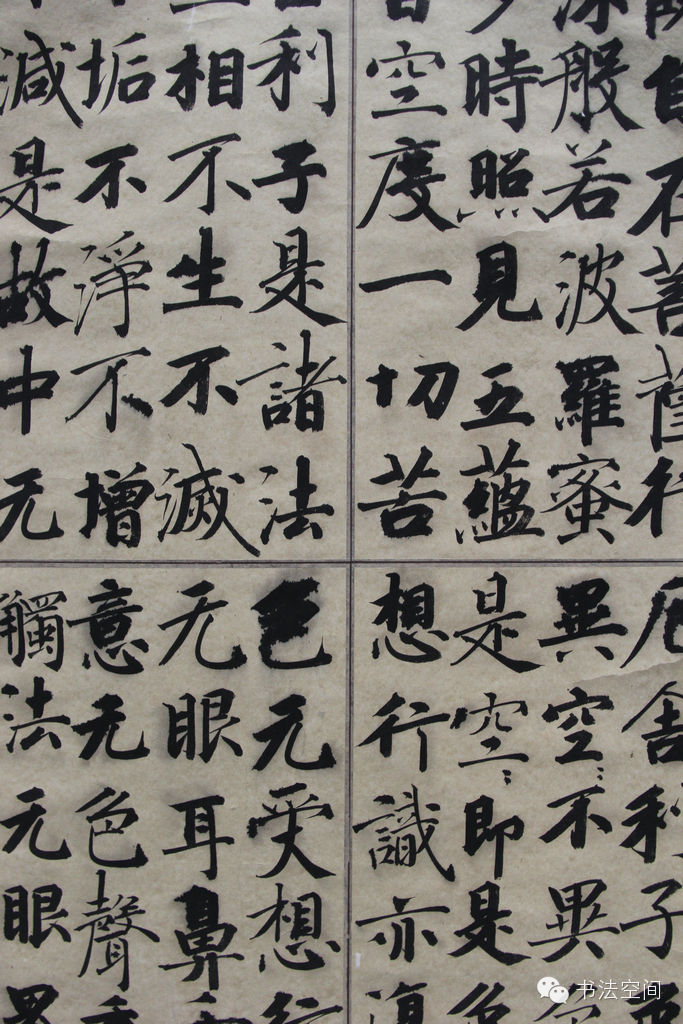 自在菩薩行
深般若波羅蜜
時照見五蘊
空度一切苦
厄舍利子
異空〻不異色
是空〻即是色
想行識亦復
利子是諸法
相不生不滅
垢不淨不增
減是故中无
色无受想行
无眼耳鼻
意无色聲
觸法无眼界
书法空间